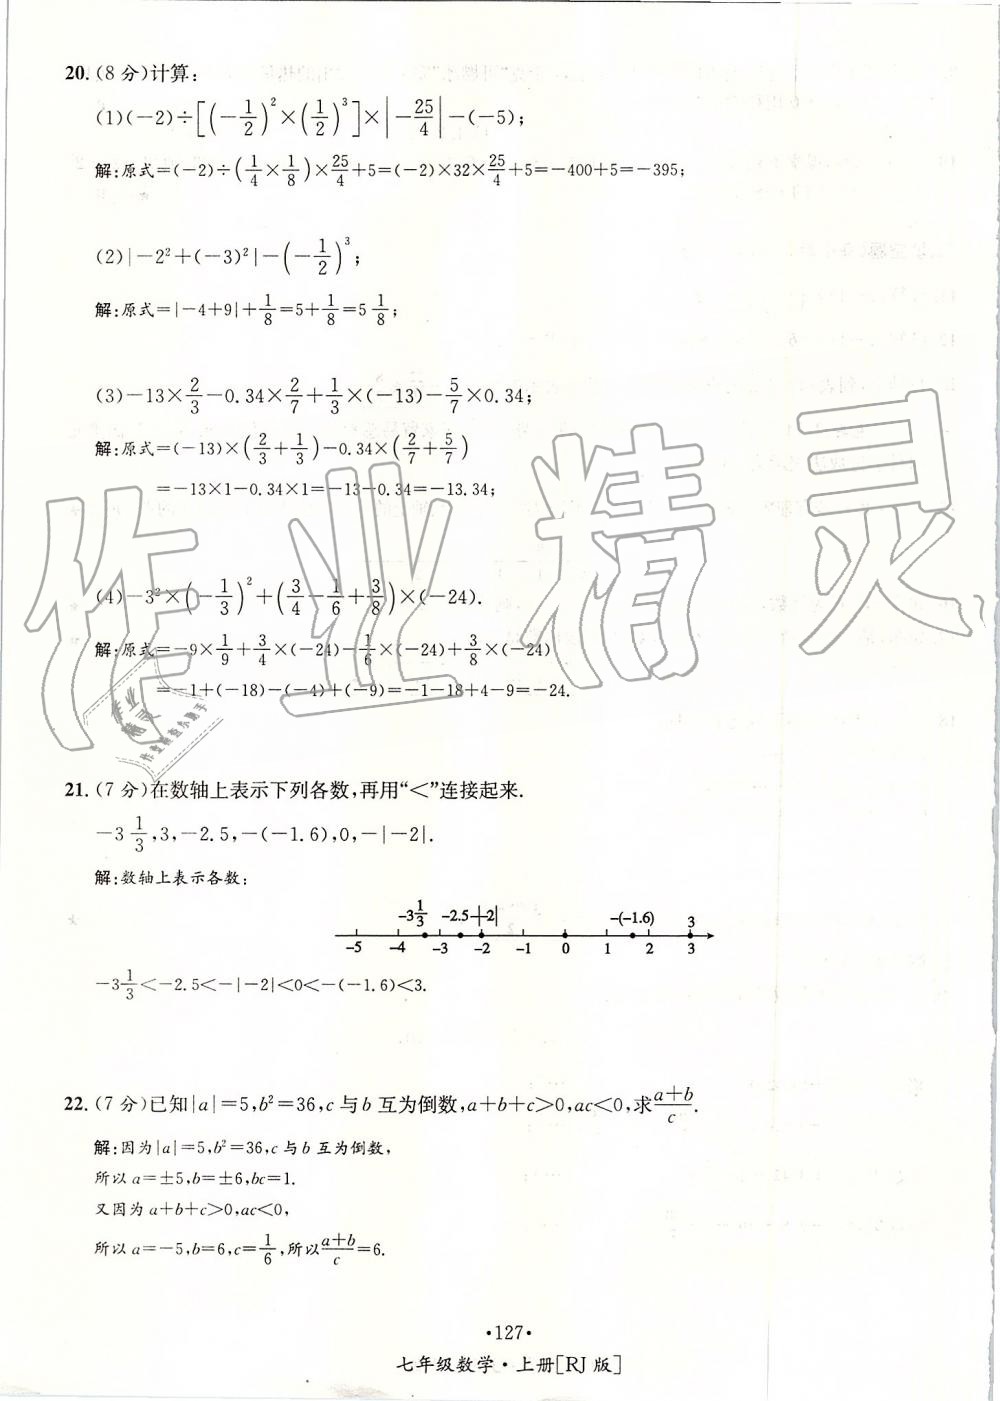 20.(8分)计算:
(1)(-2)÷[(-1/2)²×(1/2)³]×|-25/4|-(-5);
解:原式=(-2)÷(1/4×1/8)×25/4+5=(-2)×32×25/4+5=-400+5=-395;
(2)|-2²+(-3)²|-(-1/2)³;
解:原式=|-4+9|+1/8=5+1/8=5 1/8;
(3)-13×2/3-0.34×2/7+1/3×(-13)-5/7×0.34;
解:原式=(-13)×(2/3+1/3)-0.34×(2/7+5/7)
=-13×1-0.34×1=-13-0.34=-13.34;
(4)-3²×(-1/3)²+(3/4-1/6+3/8)×(-24).
解:原式=-9×1/9+3/4×(-24)-1/6×(-24)+3/8×(-24)
=-1+(-18)-(-4)+(-9)=-1-18+4-9=-24.
作业精灵
作业精灵
作业检查小助手
21.(7分)在数轴上表示下列各数,再用“<”连接起来.
-3 1/3,3,-2.5,-(-1.6),0,-|-2|.
解:数轴上表示各数:
-3 1/3 -2.5 -|-2| -(-1.6) 3
-5 -4 -3 -2 -1 0 1 2 3
-3 1/3<-2.5<-|-2|<0<-(-1.6)<3.
22.(7分)已知|a|=5,b²=36,c与b互为倒数,a+b+c>0,ac<0,求(a+b)/c.
解:因为|a|=5,b²=36,c与b互为倒数,
所以a=±5,b=±6,bc=1.
又因为a+b+c>0,ac<0,
所以a=-5,b=6,c=1/6,所以(a+b)/c=6.
·127·
七年级数学·上册[RJ版]